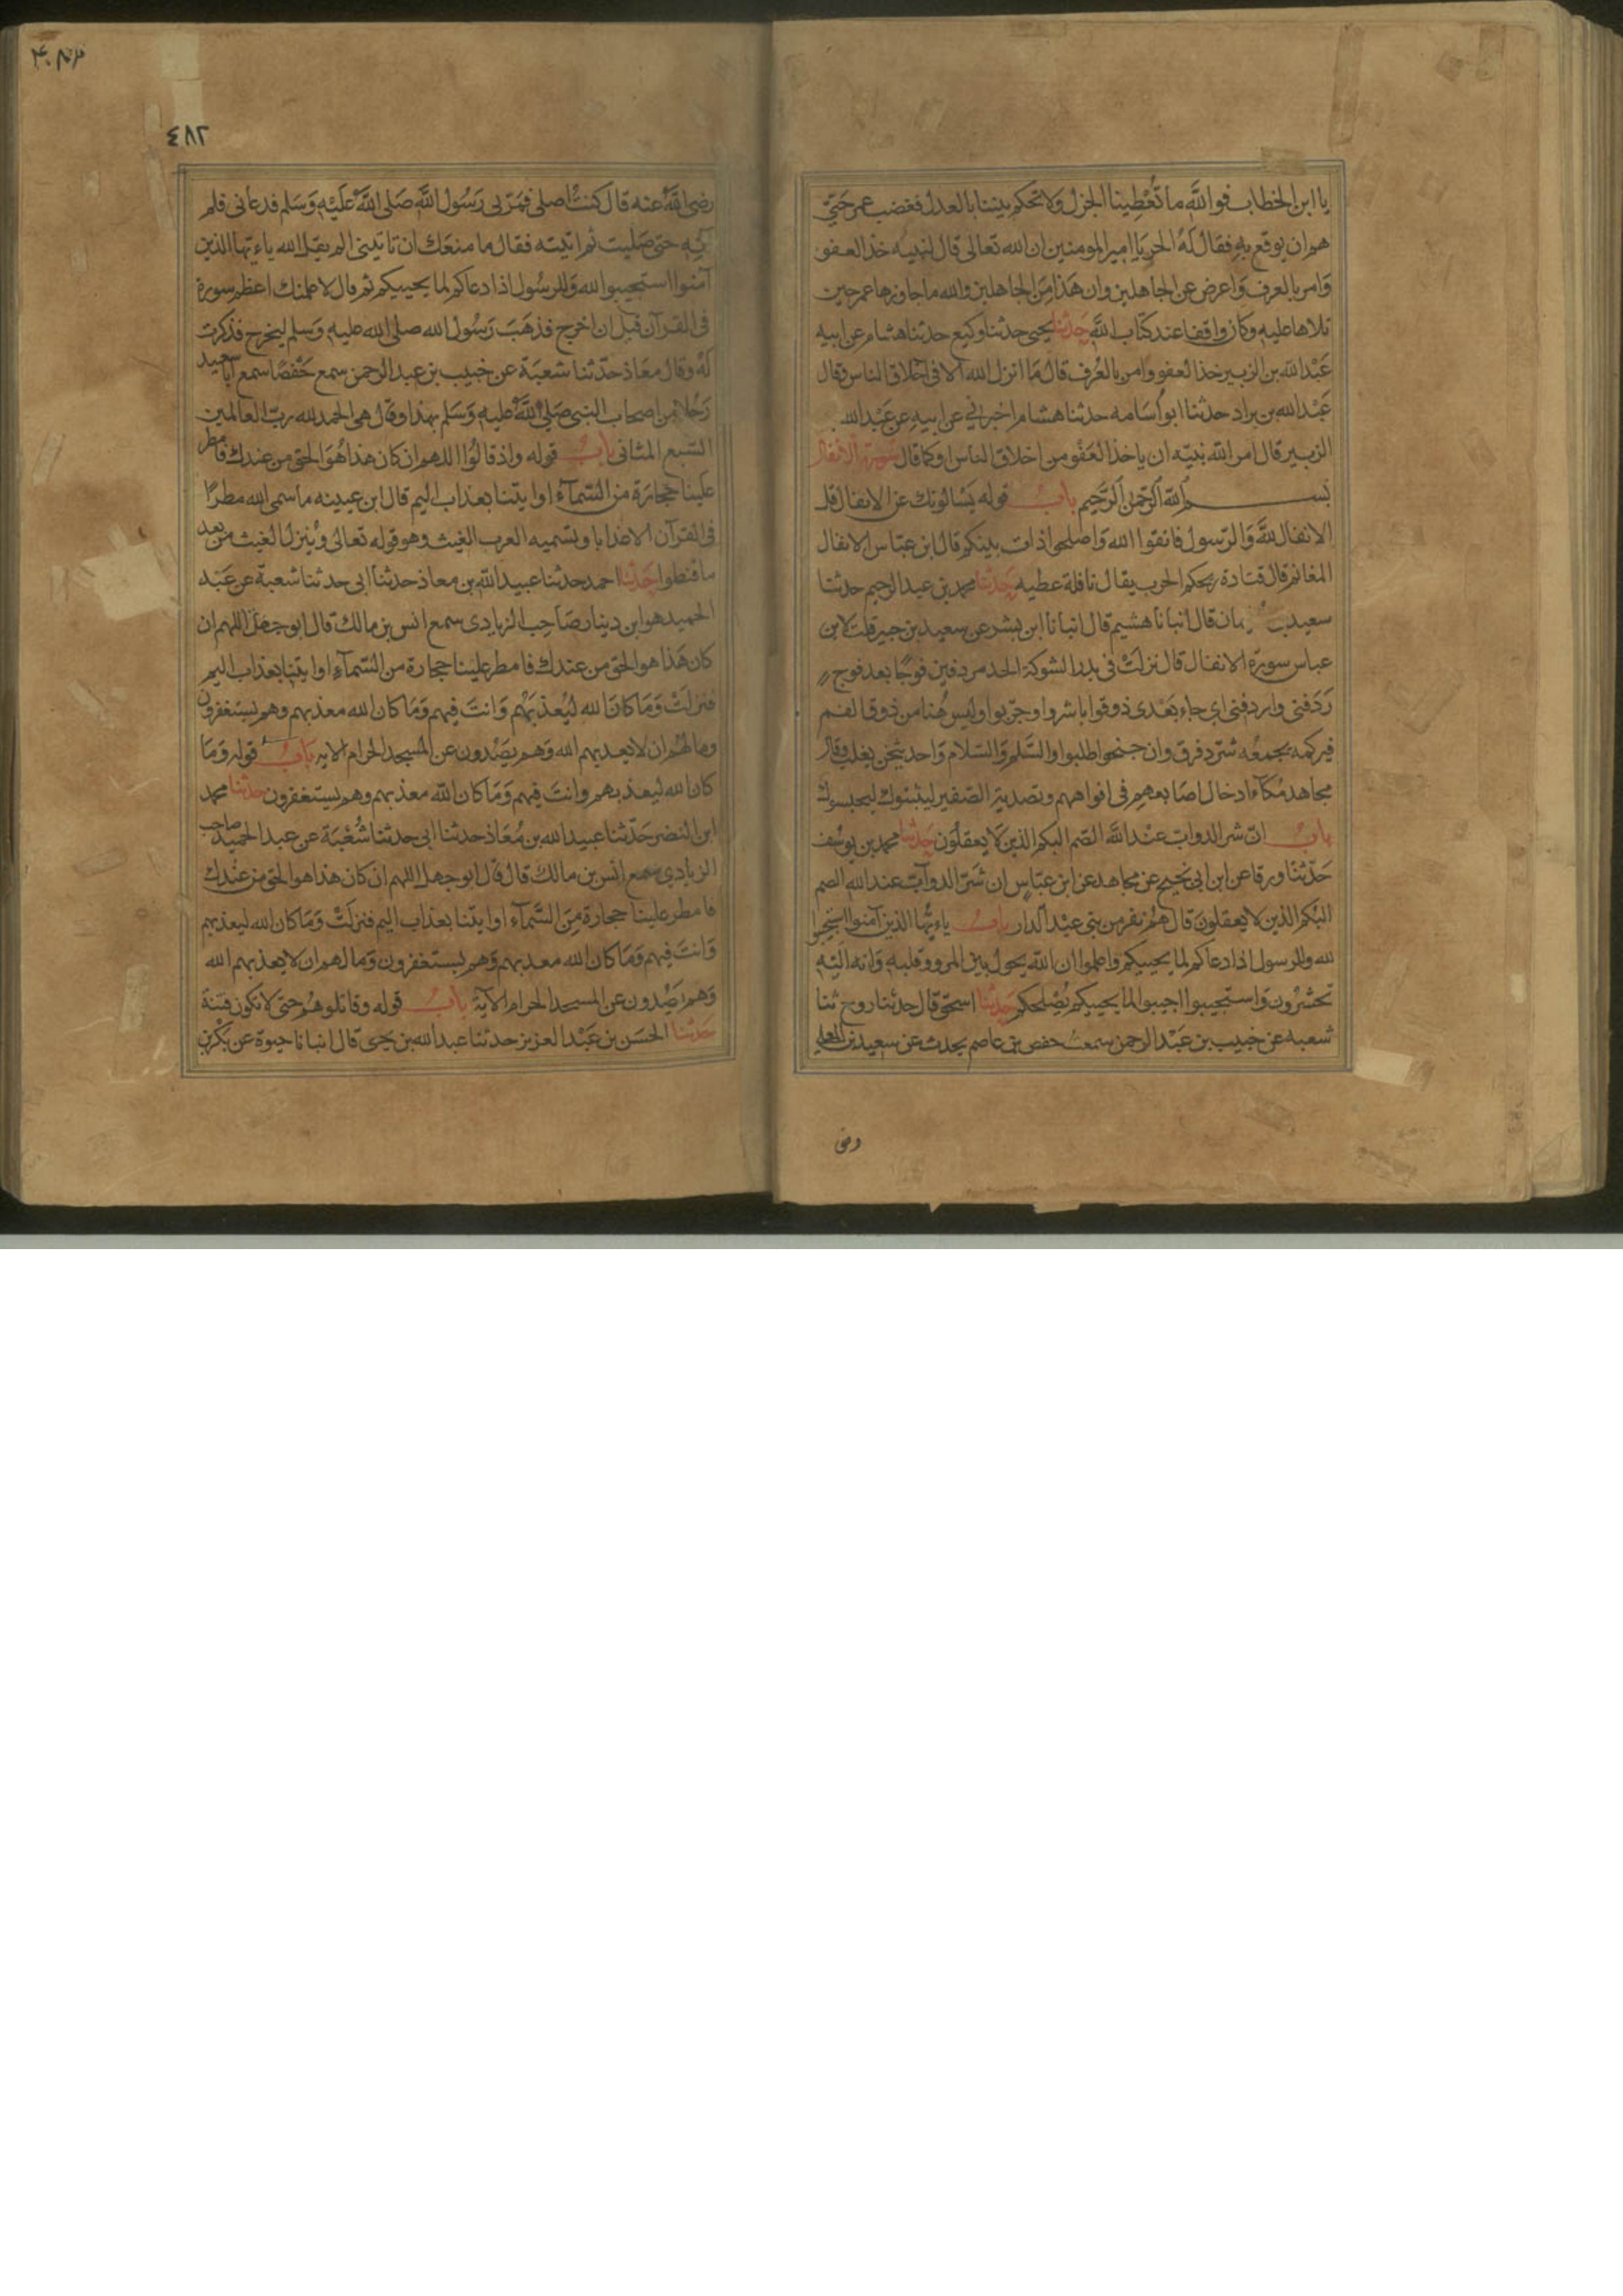 يا ابن الخطاب فوالله ما تُعْطِينا الجزل ولا تحكم بيننا بالعدل فغضب عمر حتى
هم ان يوقع به فقال له الحر يا امير المومنين ان الله تعالى قال لنبيه خذ العفو
وامر بالعرف واعرض عن الجاهلين وان هذا من الجاهلين والله ما جاوزها عمر حين
تلاها عليه وكان وقافا عند كتاب الله حدثنا يحيى حدثنا وكيع حدثنا هشام عن ابيه
عَبْد الله بن الزبير خذ العفو وامر بالعُرف قال ما انزل الله الا في اخلاق الناس وقال
عَبْد الله بن براد حدثنا ابو أسَامه حدثنا هشام اخبرني عن ابيه عن عَبْد الله
الزبير قال امر الله نبيّه ان ياخذ العَفْو من اخلاق الناس او كما قال سورة الانفال
بســم الله الرحمن الرحيم باب قوله يَسْالونك عن الانفال قل
الانفال لله وَالرّسول فاتقوا الله وَاصلحوا ذات بينكم قال ابن عبّاس الانفال
المغانم قال قتادة ريحكم الحرب يقال نافلة عطيه حدثنا محمد بن عبد الرحيم حدثنا
سعيد بن مان قال انبانا هشيم قال انبانا ابن بشر عن سعيد بن جبير قلت لابن
عباس سورة الانفال قال نزلت في بدر الشوكة الحد مردفين فوجًا بعد فوج
رَدَفني واردفني اي جاء بَعْدى ذوقوا باشروا وجرّبوا وليس هُنا من ذوق الفم
فيركمه يجمعُه شرّد فرق وان جنحوا طلبوا والسَّلم وَالسّلام وَاحد يثخن يغلب وقال
مجاهد مُكآء ادخال اصَابعهم في افواههم وتصدية الصفير ليثبتوك ليحبسوك
باب انّ شر الدواب عنْد الله الصّم البكم الذين لا يعقلون حدثنا محمد بن يوسف
حَدّثنا ورقا عن ابن ابي نجيح عن مجاهد عن ابن عبّاس ان شرّ الدوآبّ عند الله الصم
البُكم الذين لا يعقلونَ قال هُم نفر من بني عبْد الدار باب ياءيّها الذين آمنوا استجيبوا
لله وللرسول اذا دعاكم لما يحييكم واعلموا ان الله يحول بين المرو وقلبه وَانه اليْه
تحشرُون واستجيبوا اجيبوا لما يحييكم يُصْلحكم حدثنا اسحق قال حدثنا روح ثنا
شعبه عن خبيب بن عَبْد الرحمن سمعت حفص بن عاصم يحدث عن سعيد بن المعلي
رضى
٤٨٢
رضى الله عنه قال كنت اصلى فمرّ بى رَسُول الله صَلى الله عَليْه وَسَلم فدعانى فلم
آته حتى صَليت ثم اتيته فقال ما منعَك ان تاتينى الم يقل الله ياءيّها الذين
آمنوا استجيبوا لله وَللرسُول اذا دعاكم لما يحييكم ثم قال لاعلمنك اعظم سورة
فى القرآن قبل ان اخرج فذهَبَ رَسُول الله صلى الله عليه وَسلم ليخرج فذكرت
لهُ وقال معَاذ حَدّثنا شعبَة عن خبيب بن عبد الرحمن سمع حَفْصًا سمع ابا سعيد
رَجُلا من اصحاب النبى صَلى الله عليه وَسَلم بهذا وقال هى الحمد لله ربّ العالمين
السّبع المثانى باب قوله واذ قالُوا اللهم ان كان هذا هُوَ الحق من عندك فامطر
علينا حجارَة من السّمآء او ايتنا بعذاب اليم قال ابن عيينه ما سمى الله مطرًا
فى القرآن الا عذابا وتسميه العرب الغيث وهو قوله تعالى وينزل الغيث من بعد
ما قنطوا حدثنا احمد حدثنا عبيد الله بن معاذ حدثنا ابى حدثنا شعبة عن عَبْد
الحميد هو ابن دينار صَاحِب الزيادى سمع انس بن مالك قال ابو جهل اللهم ان
كان هَذا هو الحق من عندك فامطر علينا حجارة من السّمآء او ايتنا بعذاب اليم
فنزلَتْ وَمَا كانَ الله ليُعذبَهُم وَانتَ فيهم وَمَا كان الله معذبهم وهم يستغفرون
وما لهُم ان لا يعذبهم الله وَهم يصَدُون عن المسجد الحرام الايه باب قوله وَمَا
كان الله ليعذبهم وانتَ فيهم وَمَا كان الله معذبهم وهم يستغفرون حدثنا محمد
ابن النضر حَدّثنا عبيد الله بن مُعَاذ حدثنا ابى حدثنا شُعْبَة عن عبد الحميد صاحب
الزيادى سمع انس بن مالك قال قال ابو جهل اللهم ان كان هذا هو الحق من عنْدك
فامطر علينا حجارة مِنَ السَّمآء او ايتنا بعذاب اليم فنزلَتْ وَمَا كان الله ليعذبهم
وَانتَ فيهم وَمَا كان الله معذبهم وَهم يستغفرون وَما لهم ان لا يعذبهم الله
وَهم يَصُدون عن المسجد الحرام الآية باب قوله وقاتلوهُم حتى لا تكون فتنة
حدثنا الحسَن بن عَبْد العزيز حدثنا عبد الله بن يحيى قال انبانا حيوة عن بَكْر بن